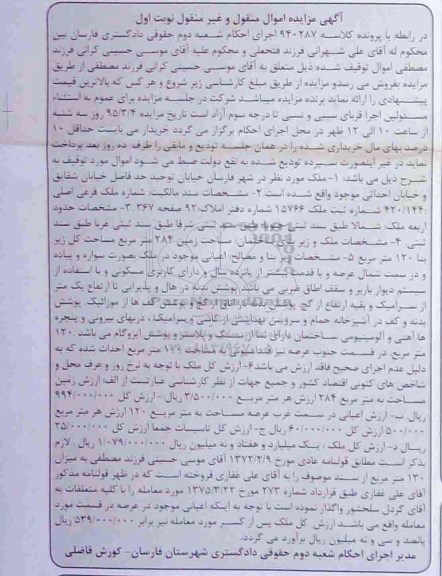 آگهی مزایده اموال منقول و غیر منقول نوبت اول
در رابطه با پرونده کلاسه ۹۴۰۲۸۷ اجرای احکام شعبه دوم حقوقی دادگستری فارسان بین
محکوم له آقای علی شهرانی فرزند فتحعلی و محکوم علیه آقای موسی حسینی کرانی فرزند
مصطفی اموال توقیف شده ذیل متعلق به آقای موسی حسینی کرانی فرزند مصطفی از طریق
مزایده بفروش می رسد و مزایده از طریق مبلغ کارشناسی زیر شروع و هر کس که بالاترین قیمت
پیشنهادی را ارائه نماید برنده مزایده میباشد شرکت در جلسه مزایده برای عموم به استثناء
مسئولین اجرا قربای سببی و نسبی تا درجه سوم آزاد است تاریخ مزایده ۹۵/۳/۴ روز سه شنبه
از ساعت ۱۰ الی ۱۲ ظهر در محل اجرای احکام برگزار می گردد خریدار می بایست حداقل ۱۰
درصد بهای مال خریداری شده را در همان جلسه تودیع و مابقی را ظرف ده روز بعد پرداخت
نماید در غیر اینصورت سپرده تودیع شده به نفع دولت ضبط می شود اموال مورد توقیف به
شرح ذیل می باشد: ۱- ملک مورد نظر در شهر فارسان خیابان توحید حد فاصل خیابان شقایق
و خیابان احداثی موجود واقع شده است. ۲- مشخصات سند مالکیت: شماره ملک فرعی اصلی
۴۲۰/۱۴۴۰ شماره ثبت ملک ۱۵۷۶۶ شماره دفتر املاک: ۹۲ صفحه ۳۶۷ ۳- مشخصات حدود
اربعه ملک: شمالا طبق سند ثبتی جنوبا طبق سند ثبتی شرقا طبق سند ثبتی غربا طبق سند
ثبتی ۴- مشخصات ملک و زیر بنای ساختمان: مساحت زمین ۲۸۴ متر مربع مساحت کل زیر
بنا ۱۲۰ متر مربع ۵- مشخصات زیر بنا و مصالح: اعیانی موجود در ملک بصورت سواره و پیاده
و در سمت شمال عرصه و با قدمت بیشتر از پانزده سال و دارای کاربری مسکونی و با استفاده از
سیستم دیوار باربر و سقف اطاق ضربی می باشد پوشش بدنه در هال و پذیرایی تا ارتفاع یک متر
از سرامیک و بقیه ارتفاع از گچ پوشش بدنه در اتاق از گچ و پوشش کف ها از موزائیک. پوشش
بدنه و کف در آشپزخانه حمام و سرویس بهداشتی از کاشی و سرامیک، دربهای بیرونی و پنجره
ها آهنی و آلومینیومی ساختمان دارای نمای سنگ و پلاستر و پوشش ایزوگام می باشد ۱۲۰
متر مربع. در قسمت جنوب عرصه نیز به مساحت متر مربع احداث شده که به
دلیل عدم اجرای صحیح فاقد ارزش می باشد ۶- ارزش کل ملک با توجه به نرخ روز و عرف محل و
شاخص های کنونی اقتصاد کشور و جمیع جهات از نظر کارشناسی عبارتست از الف: ارزش زمین
مساحت به متر مربع ۲۸۴ ارزش هر متر مربع ۳/۵۰۰/۰۰۰ ریال- ارزش کل ۹۹۴/۰۰۰/۰۰۰
ریال. ب- ارزش اعیانی در سمت غرب عرصه مساحت به متر مربع ۱۲۰ ارزش هر متر مربع
۵۰۰/۰۰۰ ارزش کل ۶۰/۰۰۰/۰۰۰ ریال ج- ارزش کل تاسیسات جمعا ارزش کل ۲۵/۰۰۰/۰۰۰
ریال د- ارزش کل ملک: یک میلیارد و هفتاد و نه میلیون ریال ۱/۰۷۹/۰۰۰/۰۰۰ ریال. لازم
بذکر است مطابق قولنامه عادی مورخ ۱۳۷۲/۲/۹ آقای موسی حسینی فرزند مصطفی به میزان
۱۳۰ متر مربع از سند موصوف را به آقای علی غفاری فروخته است که در ظهر قولنامه مذکور
آقای علی غفاری طبق قرارداد شماره ۲۷۳ مورخ ۱۳۷۵/۳/۲۲ مورد معامله را با کلیه متعلقات به
آقای گردل سلحشور واگذار نموده است با توجه به اینکه اعیانی موجود در عرصه در قسمت مورد
معامله واقع می باشد ارزش کل ملک پس از کسر مورد معامله نیز برابر ۵۳۹/۰۰۰/۰۰۰ ریال
پانصد و سی و نه میلیون ریال برآورد می گردد.
مدیر اجرای احکام شعبه دوم حقوقی دادگستری شهرستان فارسان- کورش فاضلی